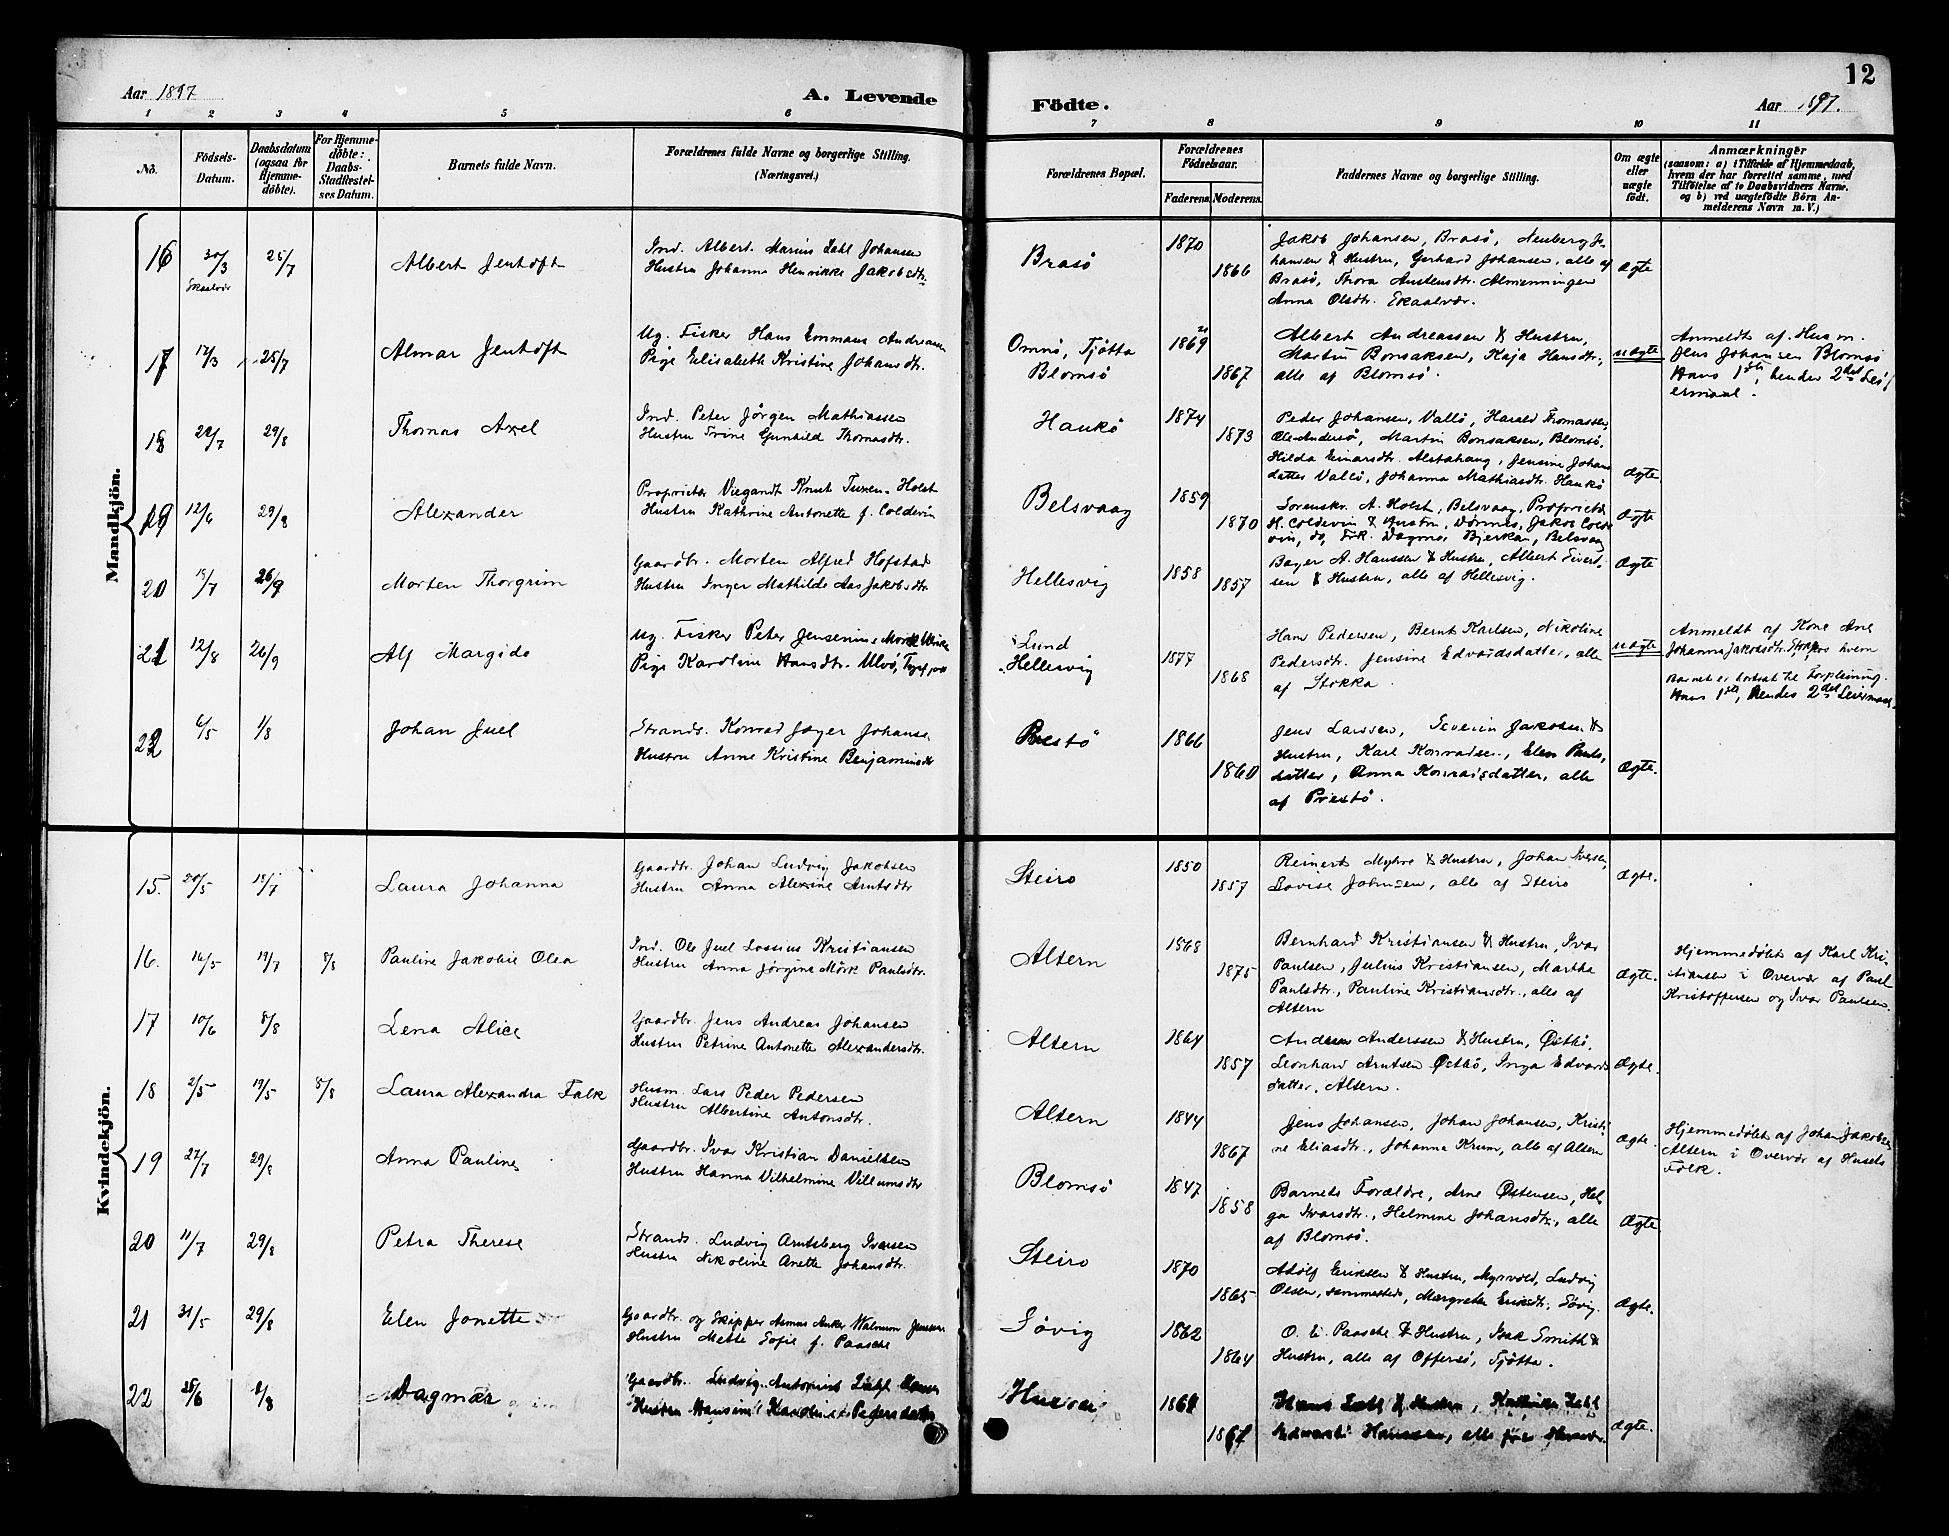 12
Aar 1897
A. Levende
Födte.
Aar 1897.
1 2 3 4 5 6 7 8 9 10 11
No.
Födsels-
Datum.
Daabsdatum
(ogsaa for
Hjemme-
döbte).
For Hjemme-
döbte:
Daabs-
Stadfæstel-
ses Datum.
Barnets fulde Navn.
Forældrenes fulde Navne og borgerlige Stilling.
(Næringsvei.)
Forældrenes Bopæl.
Forældrenes
Födselsaar.
Faderens.
Moderens.
Faddernes Navne og borgerlige Stilling.
Om ægte
eller
uægte
födt.
Anmærkninger
(saasom: a) i Tilfælde af Hjemmedaab,
hvem der har forrettet samme, med
Tilföielse af to Daabsvidners Navne.
og b) ved uægtefödte Börn An-
melderens Navn m. V.)
Mandkjön.
16 30/3 25/7 Albert Jentoft
Ind. Albert Marius Dahl Johansen
Hustru Johanna Henrikke Jakobsdtr.
Brasö 1870 1866
Jakob Johansen, Brasö, Neuberg Jo-
hansen & Hustru, Gerhard Johansen, alle af
Brasö, Thora Austensdtr. Almenningen
Anna Olsdtr. Ekaalvær.
Ægte
17 12/3 25/7 Almar Jentoft
Ug. Fisker Hans Emmans Andreassen
Pige Elisabeth Kristine Johansdtr.
Omnö, Tjötta
Blomsö
1869 1867
Albert Andreassen & Hustru,
Martin Bonsaksen, Kaja Hansdtr,
alle af Blomsö.
uægte
Anmeldt af Husm.
Jens Johansen Blomsö
Hans 1ste, hendes 2det Leie/
ermaal.
18 22/7 29/8 Thomas Axel
Ind. Peter Jörgen Mathiassen
Hustru Trine Gunhild Thomasdtr.
Haukö 1874 1873
Peder Johansen, Vallö, Harald Thomassen,
Ole Andersö, Martin Bonsaksen, Blomsö,
Hilda Einarsdtr. Alstahaug, Jensine Johans
datter Vallö, Johanna Mathiasdtr. Haukö
Ægte
19 12/6 29/8 Alexander
Proprietær Viegandt Knut Tuxen-Holst
Hustru Kathrine Antonette f. Coldevin
Belsvaag 1859 1870
Sorenskr. A. Holst, Belsvaag, Proprietær
H. Coldevin & Hustru, Dönnes, Jakob Colde
vin, do, Frk. Dagmar Bjerkan, Belsvaag
Ægte
20 15/7 26/9 Morten Thorgrim
Gaardbr. Morten Alfred Hofstad
Hustru Inger Mathilde Aas Jakobsdtr.
Hellesvig 1858 1857
Bager A. Hanssen & Hustru, Albert Sivert-
sen & Hustru, alle af Hellesvig.
Ægte
21 12/8 26/9 Alf Margido
Ug. Fisker Peter Jensenius
Pige Karoline Hansdtr. Ulvö,
Lund
Hellesvig
1877 1868
Hans Pedersen, Bernt Karlsen, Nikoline
Pedersdtr. Jensine Edvardsdatter, alle
af Stokka.
uægte
Anmeldt af Kone Ane
Johanna Jakobsdtr. hvem
Barnet er bortsat til Forpleining.
Hans 1ste, hendes 2det Leiermaal.
22 6/5 1/8 Johan Juel
Strands. Konrad Jæger Johanse
Hustru Anne Kristine Benjaminsdtr
Prestö 1866 1860
Jens Larssen, Severin Jakobsen &
Hustru, Karl Konradsen, Elen Pauls-
datter, Anna Konradsdatter, alle
af Prestö.
Ægte.
Kvindekjön.
15. 20/5 18/7 Laura Johanna
Gaardbr. Johan Ludvig Jakobsen
Hustru Anna Alexine Arntsdtr
Steiro 1850 1857
Reinert Myhre & Hustru, Johan Iversen
Lovise Johnsen, alle af Steiro
Ægte.
16. 16/5 19/7 8/8 Pauline Jakobie Olea
Ind. Ole Juel Lossius Kristiansen
Hustru Anna Jörgine Mörk Paulsdtr.
Altern 1868 1875
Bernhard Kristiansen & Hustru, Ivar
Paulsen, Julius Kristiansen, Martha
Paulsdtr., Pauline Kristiansdtr., alle af
Altern
Ægte.
Hjemmedøbt af Karl Kri-
stiansen i Overvær af Paul
Kristoffersen og Ivar Paulsen.
17 10/6 8/8 Lena Alice
Gaardbr. Jens Andreas Johansen
Hustru Petrine Antonette Alexandersdtr.
Altern 1864 1857
Andreas Anderssen & Hustru, Østbö,
Leonhard Arntsen Østbö, Inga Edvards
datter, Altern.
Ægte.
18 2/5 19/5 8/8 Laura Alexandra Falk
Husm. Lars Peder Pedersen
Hustru Albertine Antonsdtr.
Altern 1844 1867
Jens Johansen, Johan Johansen, Kristi-
ne Eliasdtr., Johanna Krum, alle af Altern
Ægte.
Hjemmedøbt af Johan Jakobsen
Altern i Overvær af Husets
Folk.
19 27/7 29/8 Anna Pauline
Gaardbr. Ivar Kristian Danielsen
Hustru Hanna Vilhelmine Villumsdtr
Blomsö 1847 1858
Barnets Forældre, Arne Østensen, Hel-
ga Ivarsdtr., Helmine Johansdtr., alle
af Blomsö.
Ægte
20 11/7 29/8 Petra Therese
Strands. Ludvig Arntsberg Iversen
Hustru Nikoline Anette Johansdtr.
Steiro 1870 1865
Adolf Eriksen & Hustru, Myrvold, Ludvig
Olsen, sammesteds, Margrete Eriksdtr. Sövig.
Ægte.
21 31/5 29/8 Elen Jonette
Gaardbr. og Skipper Asmus Anker Walnum Jensen
Hustru Mette Sofie f. Paasche
Sövig 1862 1864
O. E. Paasche & Hustru, Isak Smith &
Hustru, alle af Offersö, Tjötta.
22 25/6 8/8 Dagmar
Gaardbr. Ludvig Antonius Dahl Hansen
Hustru Hansine Karoline Pedersdatter
1867
Hans Dahl & Hustru, Kathinka Dahl
Edvard Hanssen, alle fra
Ægte.